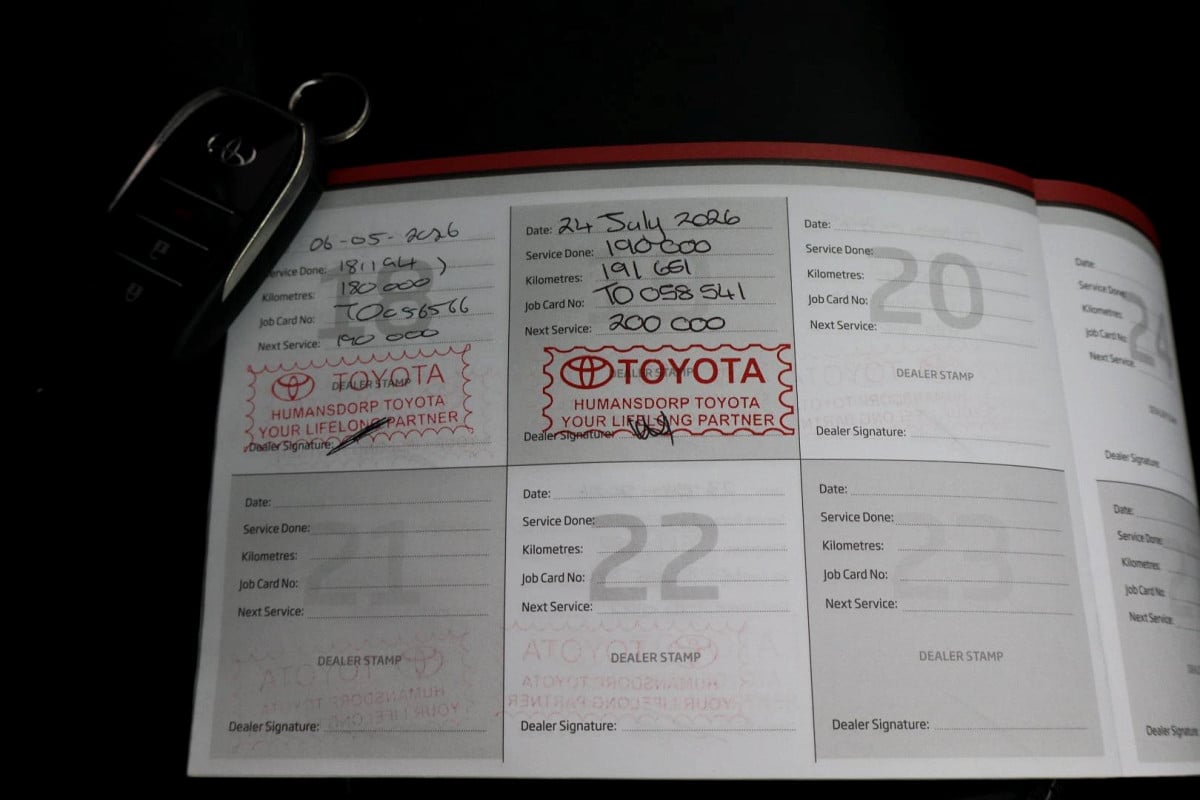 06-05-2026
Service Done: 181194
Kilometres: 180 000
Job Card No: TO056566
Next Service: 190 000
DEALER STAMP
TOYOTA
HUMANSDORP TOYOTA
YOUR LIFELONG PARTNER
Dealer Signature:
Date: 24 July 2026
Service Done: 190 000
Kilometres: 191 651
Job Card No: TO 058 541
Next Service: 200 000
DEALER STAMP
TOYOTA
HUMANSDORP TOYOTA
YOUR LIFELONG PARTNER
Dealer Signature:
20
Date:
Service Done:
Kilometres:
Job Card No:
Next Service:
DEALER STAMP
Dealer Signature:
24
Date:
Service Done:
Kilometres:
Job Card No:
Next Service:
Dealer Signature:
21
Date:
Service Done:
Kilometres:
Job Card No:
Next Service:
DEALER STAMP
Dealer Signature:
22
Date:
Service Done:
Kilometres:
Job Card No:
Next Service:
DEALER STAMP
Dealer Signature:
23
Date:
Service Done:
Kilometres:
Job Card No:
Next Service:
DEALER STAMP
Dealer Signature:
Date:
Service Done:
Kilometres:
Job Card No:
Next Service:
Dealer Signature: